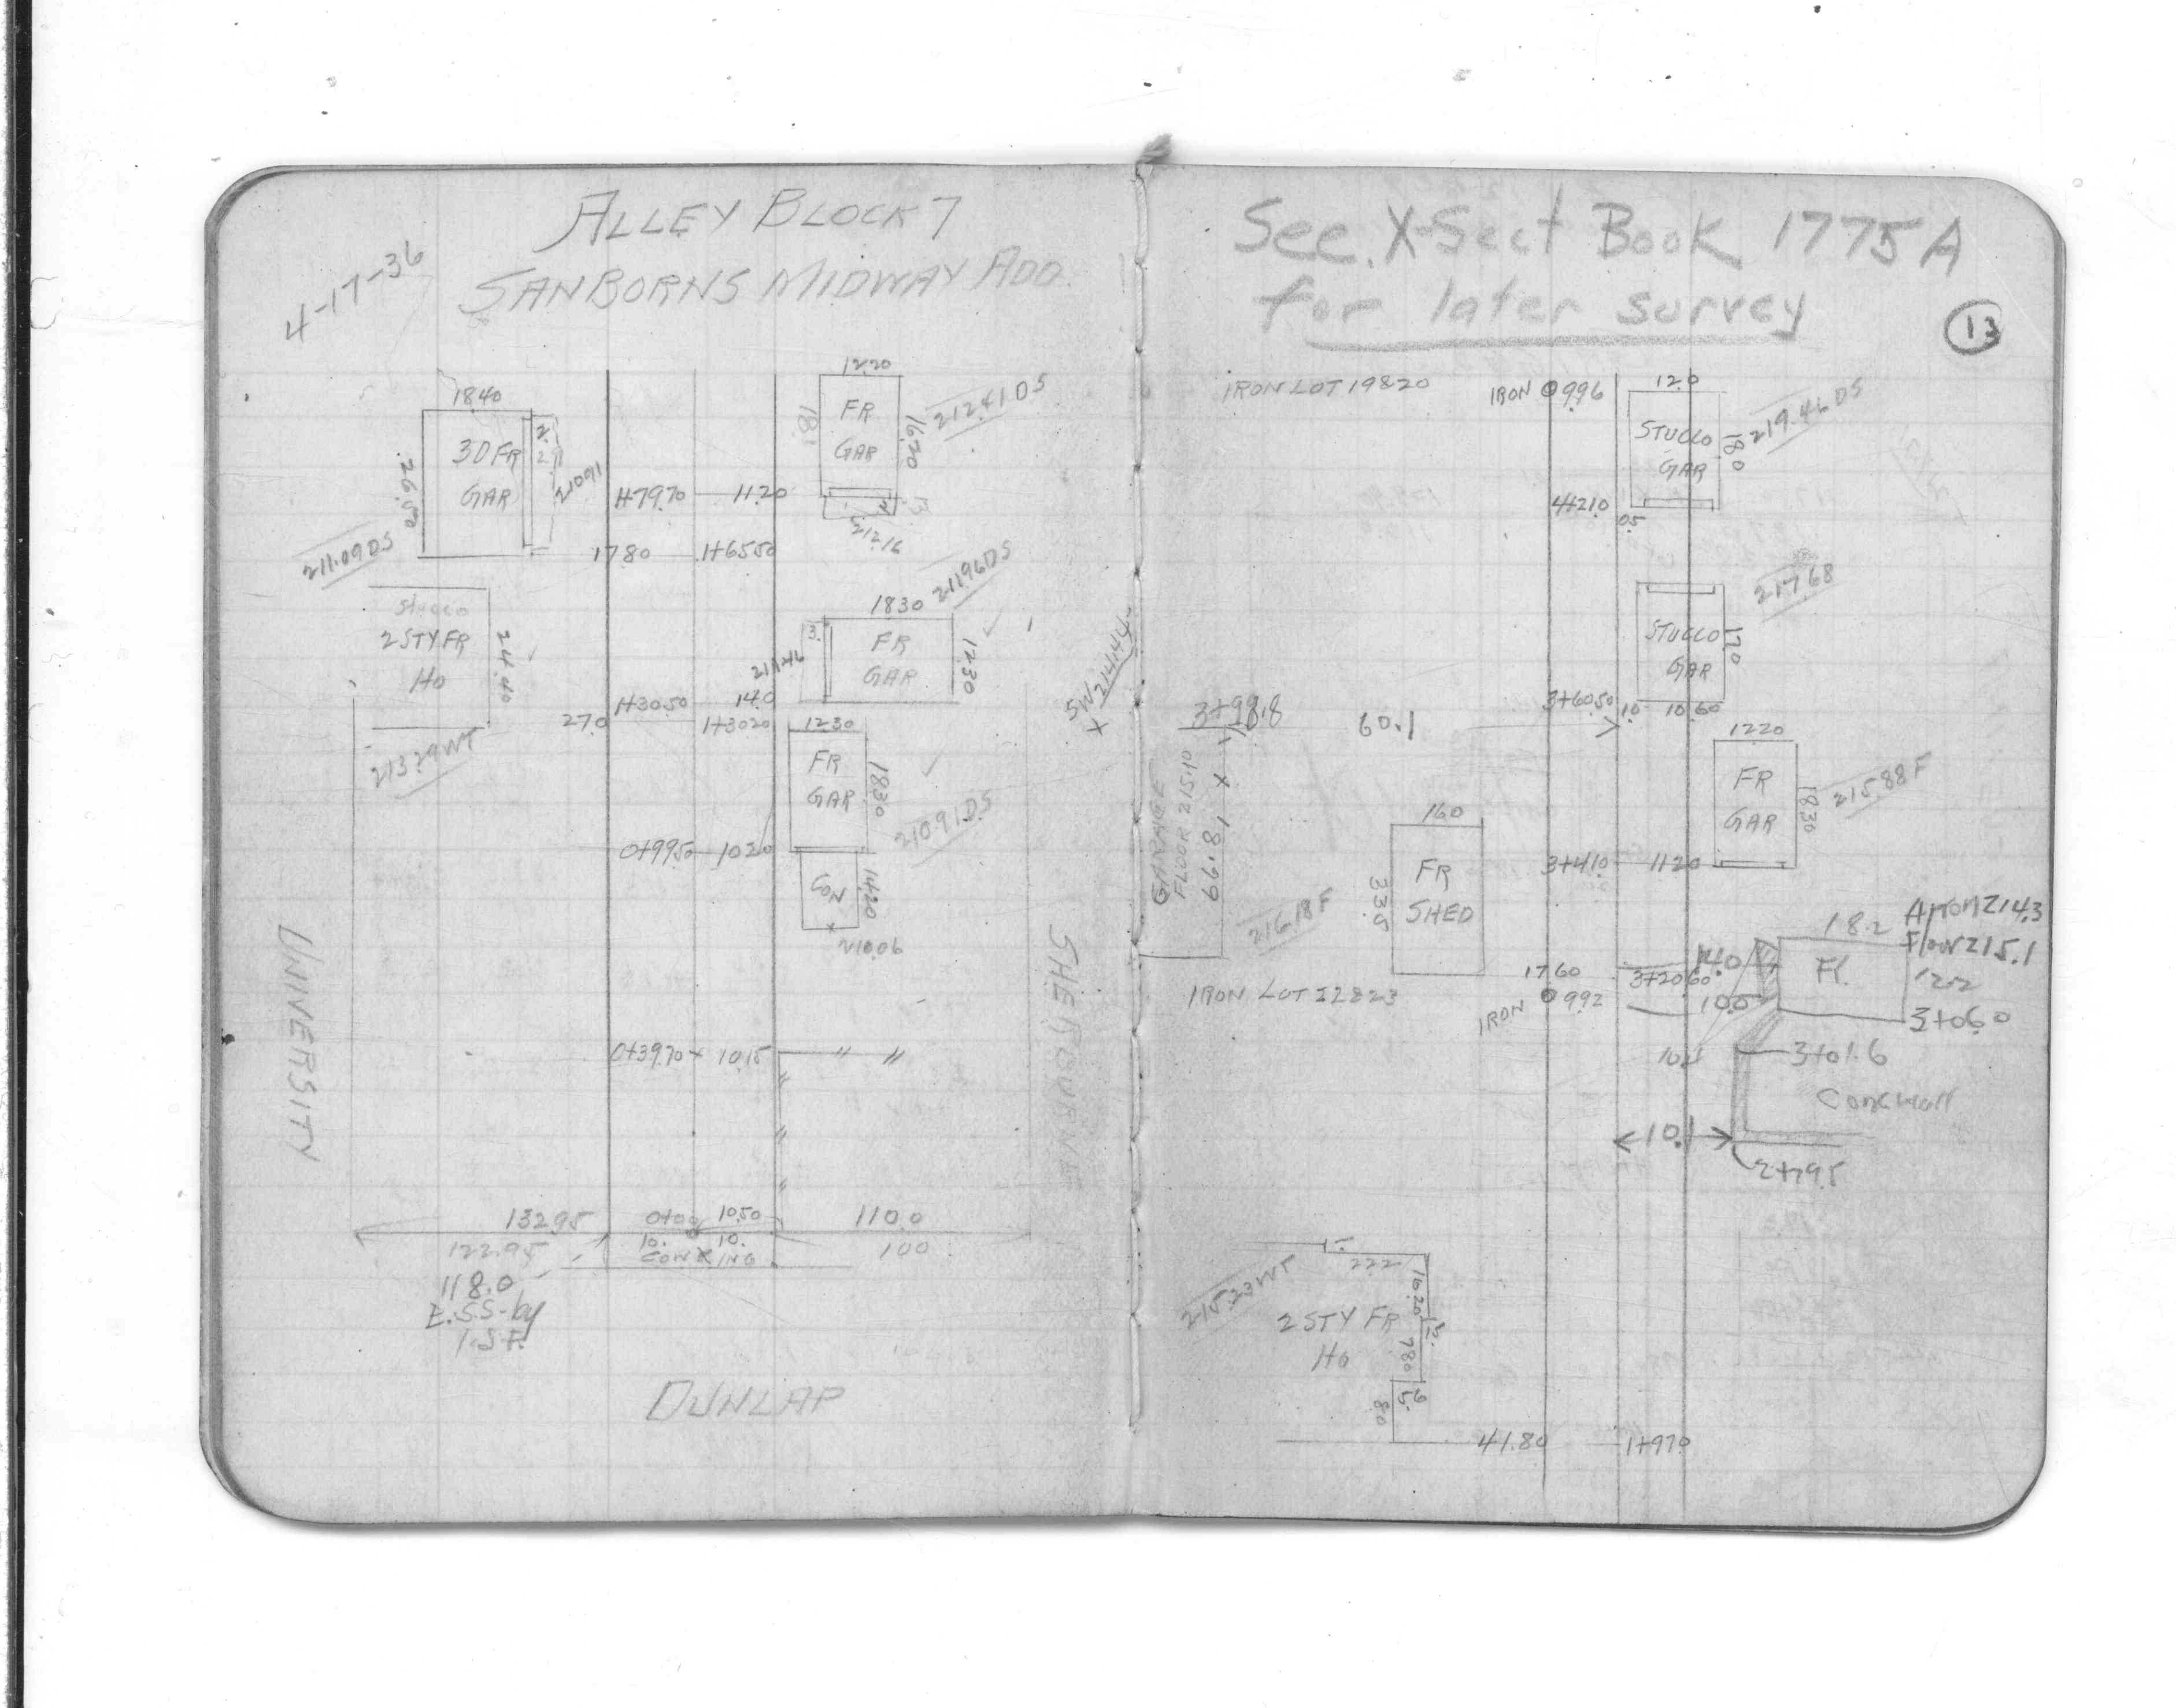 ALLEY BLOCK 7
SANBORNS MIDWAY ADD.
4-17-36
1840
3D FR
GAR
26.00
2109.1
211.09 DS
1+79.70
11.20
17.80
1+65.50
1220
FR
GAR
18.1
16.20
212.41 DS
212.16
Stucco
2 STY FR
Ho
24.40
213.29 WT
27.0
1+30.50
14.0
1+30.20
1830
FR
GAR
12.30
3.
211.46
211.96 DS
12.30
FR
GAR
18.30
210.91 DS
0+99.50
10.20
CON
14.20
210.06
0+39.70
10.15
UNIVERSITY
SHERBURNE
132.95
0+00
10.50
110.0
122.95
10.
10.
100
118.0
E.S.S. by
I.S.F.
DUNLAP
See. X-Sect Book 1775A
for later survey
13
IRON LOT 19 & 20
IRON 0 99.6
12.0
STUCCO
GAR
18.0
219.46 DS
4+21.0
05.
217.68
STUCCO
GAR
17.0
3+60.50
1.0
10.60
SW
214.44
3+98.8
60.1
GARAGE
FLOOR 215.10
18.99
1220
FR
GAR
18.30
215.88 F
3+41.0
11.20
16.0
FR
SHED
33.5
216.18 F
17.60
3+20.60
IRON LOT 22 & 23
IRON 0 99.2
14.0
10.0
18.2
Apron 214.3
Floor 215.1
Fl.
12.2
3+06.0
3+01.6
Conc wall
10.1
2+79.5
215.23 WT
22.2
16.20
2 STY FR
Ho
7.80
80
41.80
1+97.0